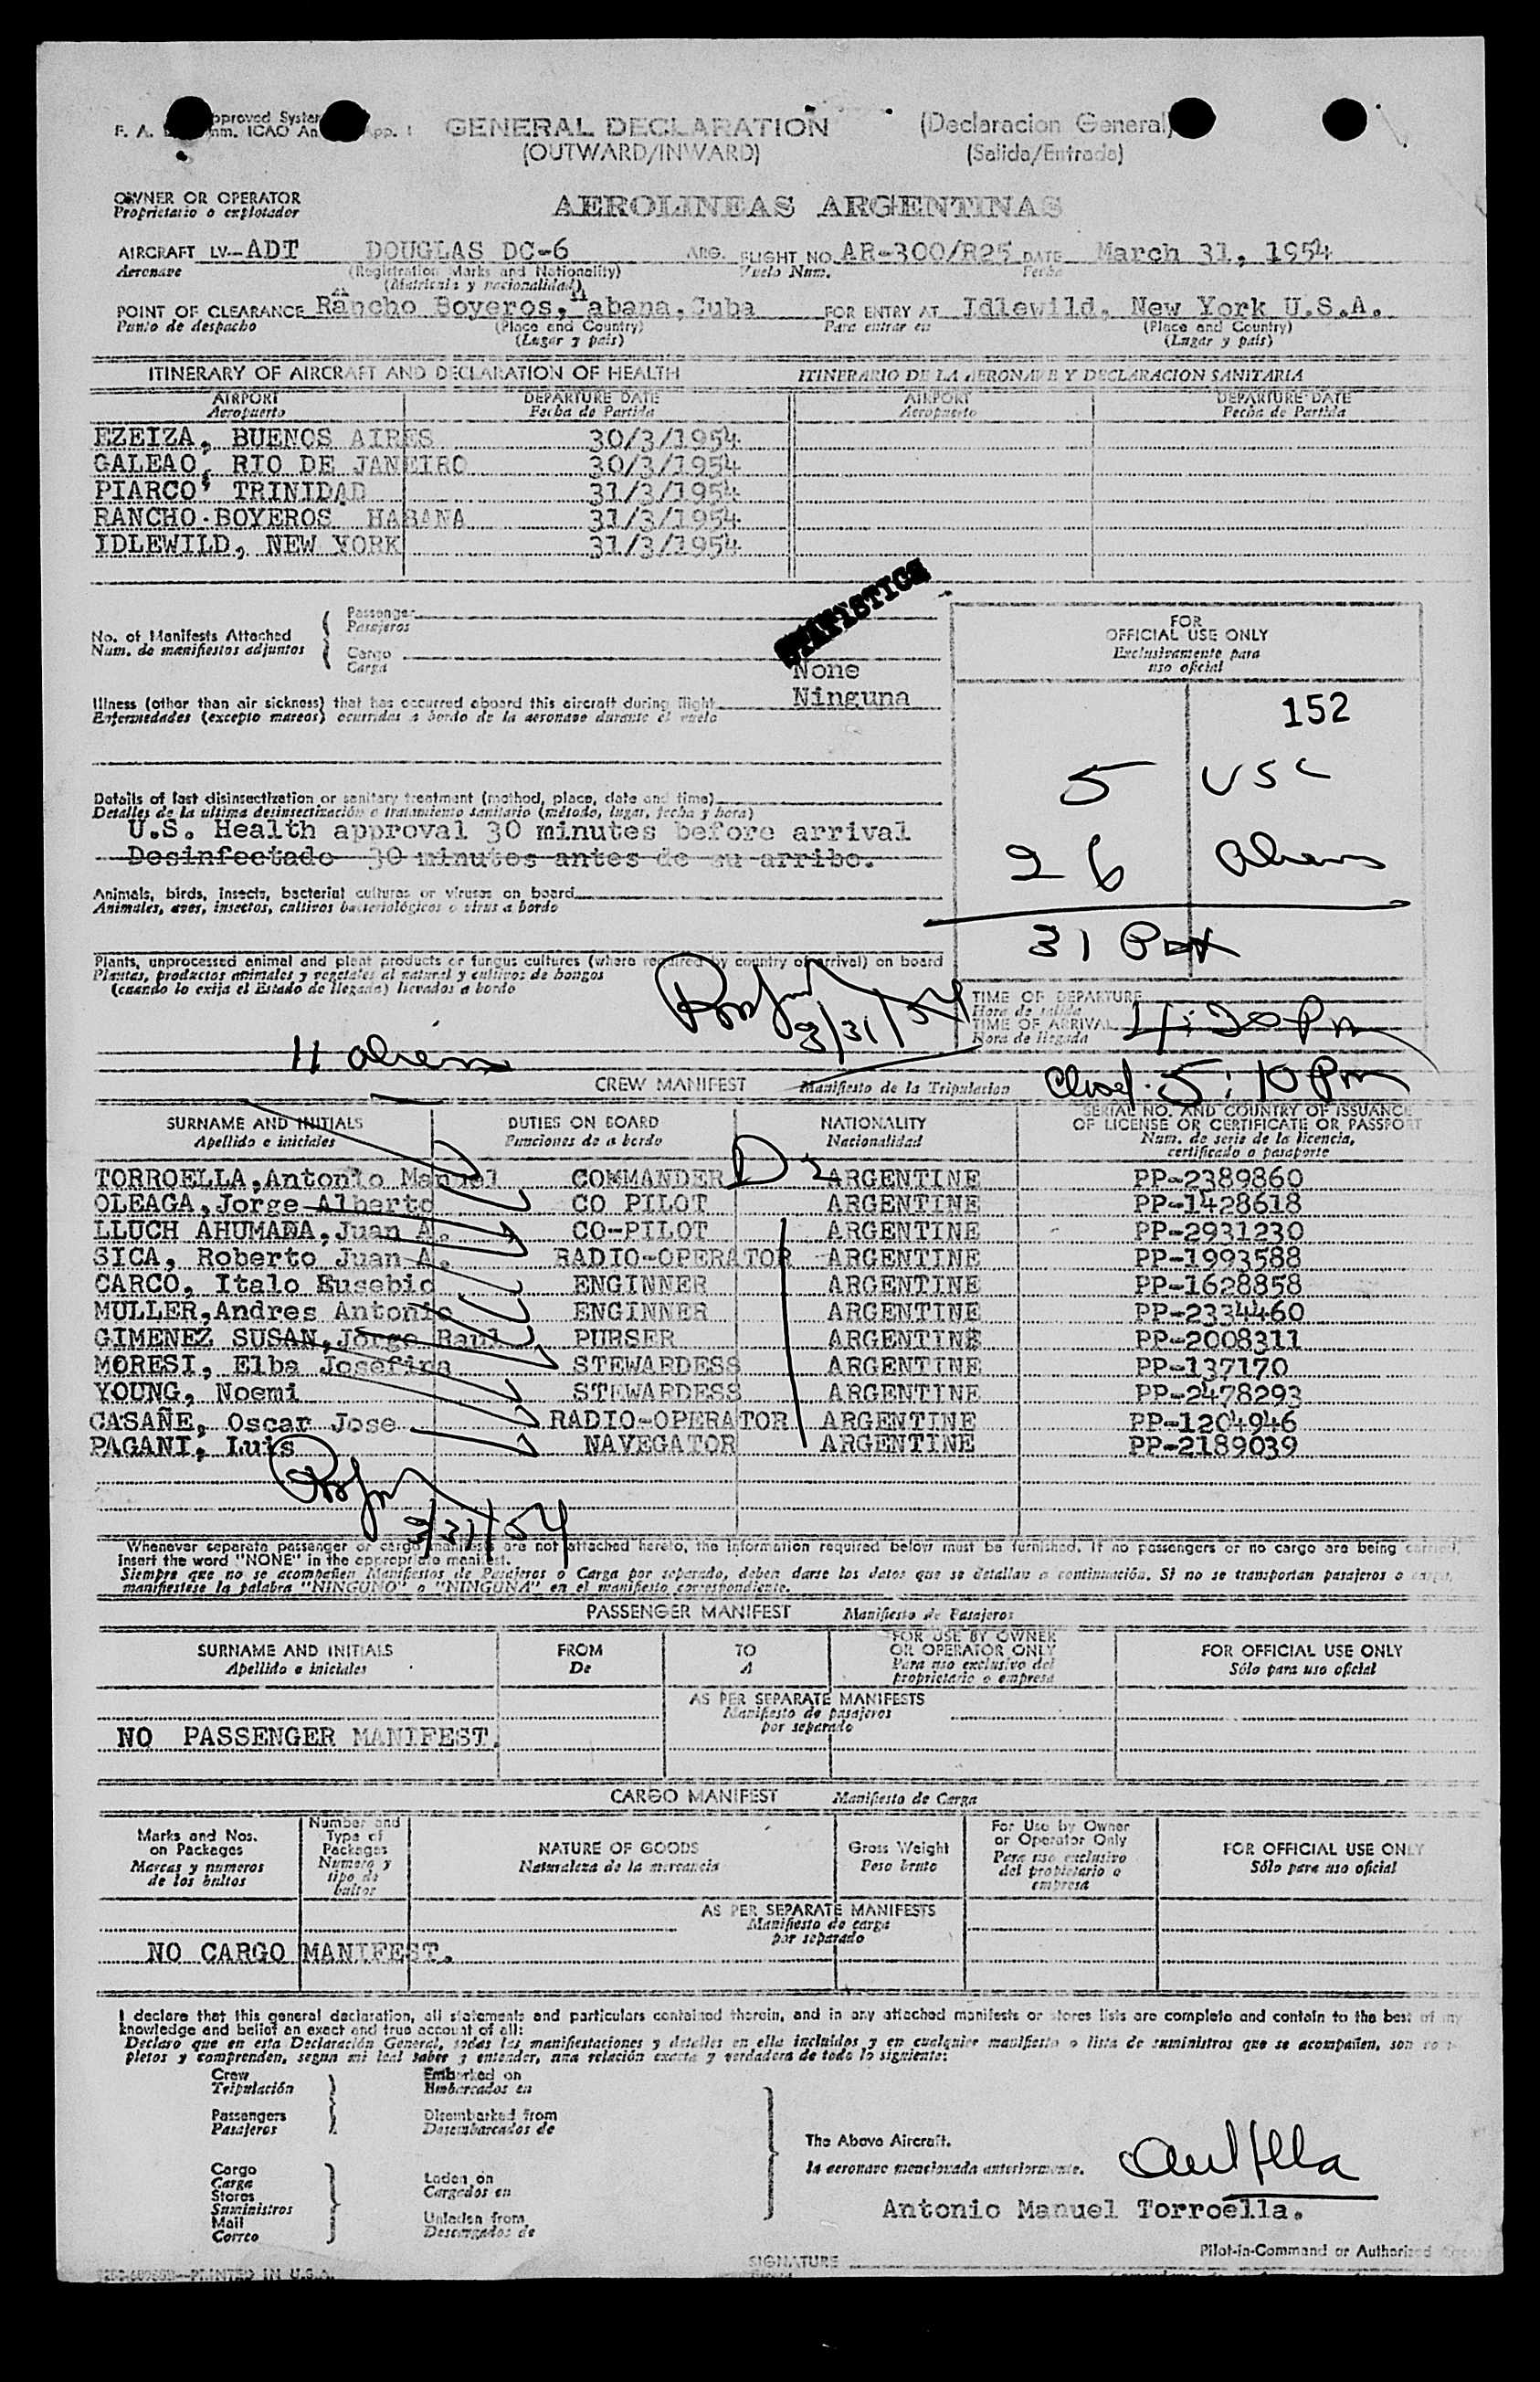 GENERAL DECLARATION (Declaracion General)
(OUTWARD/INWARD) (Salida/Entrada)
OWNER OR OPERATOR
Proprietario o explotador
AEROLINEAS ARGENTINAS
AIRCRAFT LV-ADT DOUGLAS DC-6 ARG. FLIGHT NO. AR-300/R25 DATE March 31, 1954
Aeronave (Registration Marks and Nationality) Vuelo Num. Fecha
(Matricula y nacionalidad)
POINT OF CLEARANCE Rancho Boyeros, Habana, Cuba FOR ENTRY AT Idlewild, New York U.S.A.
Punto de despacho (Place and Country) Para entrar en (Place and Country)
(Lugar y país) (Lugar y país)
ITINERARY OF AIRCRAFT AND DECLARATION OF HEALTH ITINERARIO DE LA AERONAVE Y DECLARACION SANITARIA
AIRPORT DEPARTURE DATE AIRPORT DEPARTURE DATE
Aeropuerto Fecha de Partida Aeropuerto Fecha de Partida
EZEIZA, BUENOS AIRES 30/3/1954
GALEAO, RIO DE JANEIRO 30/3/1954
PIARCO, TRINIDAD 31/3/1954
RANCHO-BOYEROS HABANA 31/3/1954
IDLEWILD, NEW YORK 31/3/1954
STATISTICS
No. of Manifests Attached
Num. de manifiestos adjuntos
Passenger
Pasajeros
Cargo
Carga
FOR
OFFICIAL USE ONLY
Exclusivamente para
uso oficial
None
Illness (other than air sickness) that has occurred aboard this aircraft during flight Ninguna
Enfermedades (excepto mareos) ocurridas a bordo de la aeronave durante el vuelo
152
5 USC
26 aliens
31 Pax
Details of last disinsectization or sanitary treatment (method, place, date and time)
Detalles de la ultima desinsectización o tratamiento sanitario (método, lugar, fecha y hora)
U.S. Health approval 30 minutes before arrival
Desinfectado 30 minutos antes de su arribo.
Animals, birds, insects, bacterial cultures or viruses on board
Animales, aves, insectos, cultivos bacteriológicos o virus a bordo
Plants, unprocessed animal and plant products or fungus cultures (where required by country of arrival) on board
Plantas, productos animales y vegetales al natural y cultivos de hongos
(cuando lo exija el Estado de llegada) llevados a bordo
3/31/54
TIME OF DEPARTURE
Hora de salida
TIME OF ARRIVAL 4:20 Pm
Hora de llegada
11 aliens
Closed. 5:10 Pm
CREW MANIFEST Manifiesto de la Tripulacion
SURNAME AND INITIALS DUTIES ON BOARD NATIONALITY SERIAL NO. AND COUNTRY OF ISSUANCE
OF LICENSE OR CERTIFICATE OR PASSPORT
Apellido e iniciales Funciones de a bordo Nacionalidad Num. de serie de la licencia,
certificado o pasaporte
D2
TORROELLA,Antonio Manuel COMMANDER ARGENTINE PP-2389860
OLEAGA,Jorge Alberto CO PILOT ARGENTINE PP-1428618
LLUCH AHUMADA,Juan A. CO-PILOT ARGENTINE PP-2931230
SICA, Roberto Juan A. RADIO-OPERATOR ARGENTINE PP-1993588
CARCO, Italo Eusebio ENGINNER ARGENTINE PP-1628858
MULLER,Andres Antonio ENGINNER ARGENTINE PP-2334460
GIMENEZ SUSAN,Jorge Raul PURSER ARGENTINE PP-2008311
MORESI, Elba Josefina STEWARDESS ARGENTINE PP-137170
YOUNG, Noemi STEWARDESS ARGENTINE PP-2478293
CASAÑE, Oscar Jose RADIO-OPERATOR ARGENTINE PP-1204946
PAGANI, Luis NAVEGATOR ARGENTINE PP-2189039
3/31/54
Whenever separate passenger or cargo manifests are not attached hereto, the information required below must be furnished. If no passengers or no cargo are being carried,
insert the word "NONE" in the appropriate manifest.
Siempre que no se acompañen Manifiestos de Pasajeros o Carga por separado, deben darse los datos que se detallan a continuación. Si no se transportan pasajeros o carga,
manifiestese la palabra "NINGUNO" o "NINGUNA" en el manifiesto correspondiente.
PASSENGER MANIFEST Manifiesto de Pasajeros
SURNAME AND INITIALS FROM TO FOR USE BY OWNER
OR OPERATOR ONLY FOR OFFICIAL USE ONLY
Apellido e iniciales De A Para uso exclusivo del
propietario o empresa Sólo para uso oficial
AS PER SEPARATE MANIFESTS
Manifiesto de pasajeros
por separado
NO PASSENGER MANIFEST.
CARGO MANIFEST Manifiesto de Carga
Marks and Nos.
on Packages
Marcas y numeros
de los bultos
Number and
Type of
Packages
Numero y
tipo de
bultos
NATURE OF GOODS
Naturaleza de la mercancia
Gross Weight
Peso bruto
For Use by Owner
or Operator Only
Para uso exclusivo
del propietario o
empresa
FOR OFFICIAL USE ONLY
Sólo para uso oficial
AS PER SEPARATE MANIFESTS
Manifiesto de carga
por separado
NO CARGO MANIFEST.
I declare that this general declaration, all statements and particulars contained therein, and in any attached manifests or stores lists are complete and contain to the best of my
knowledge and belief an exact and true account of all:
Declaro que en esta Declaración General, todas las manifestaciones y detalles en ella incluidos y en cualquier manifiesto o lista de suministros que se acompañen, son
pletos y comprenden, segun mi leal saber y entender, una relación exacta y verdadera de todo lo siguiente:
Crew
Tripulación
Passengers
Pasajeros
Embarked on
Embarcados en
Disembarked from
Desembarcados de
Cargo
Carga
Stores
Suministros
Mail
Correo
Laden on
Cargados en
Unladen from
Descargados de
The Above Aircraft.
la aeronave mencionada anteriormente.
Antonio Manuel Torroella.
Pilot-in-Command or Authorized
SIGNATURE
PRINTED IN U.S.A.